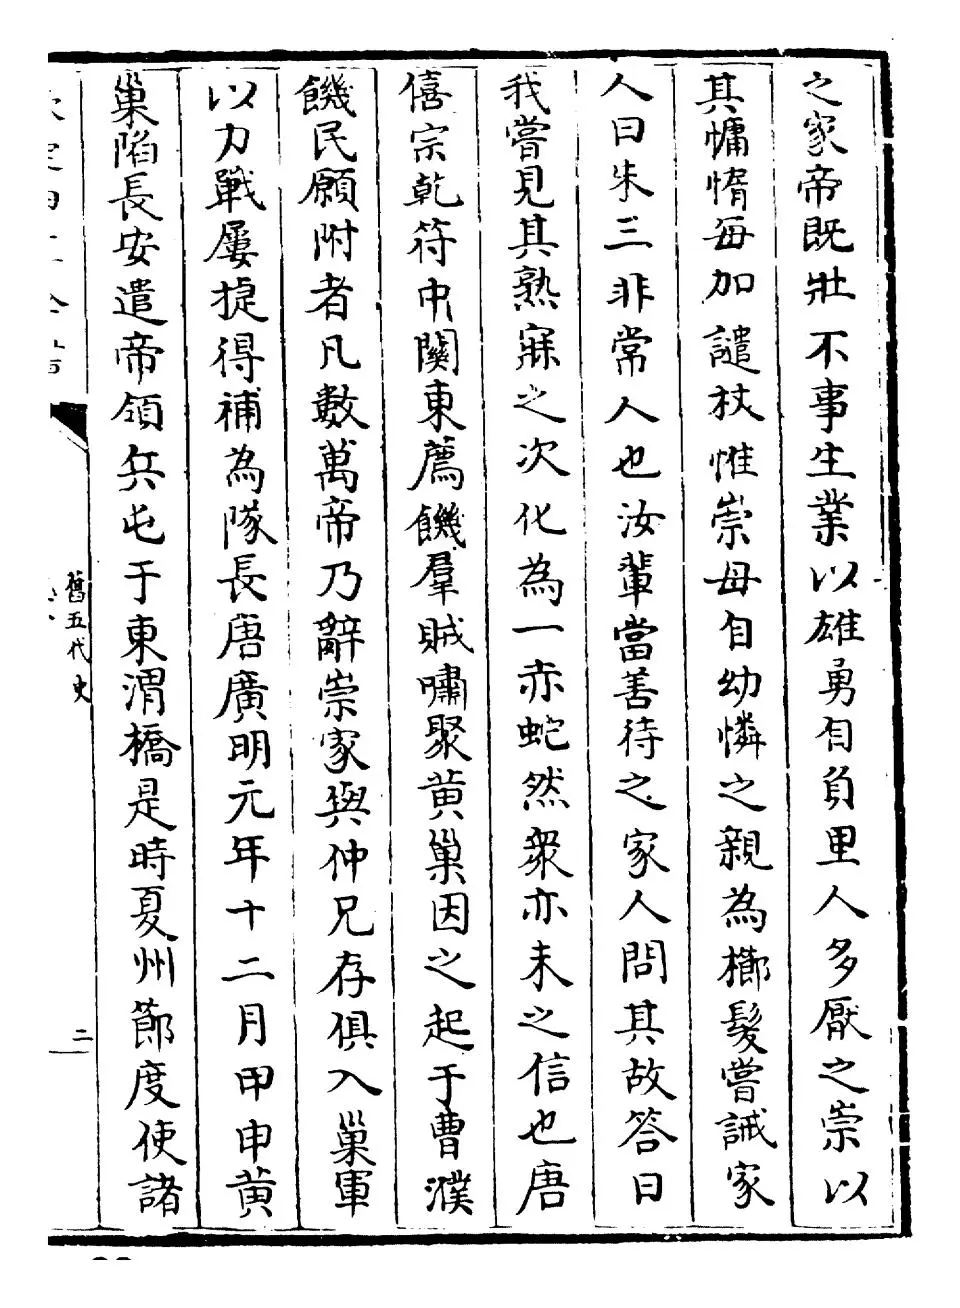 之家帝既壯不事生業以雄勇自負里人多厭之崇以
其慵惰每加譴杖惟崇母自幼憐之親為櫛髮嘗誡家
人曰朱三非常人也汝輩當善待之家人問其故答曰
我嘗見其熟寐之次化為一赤蛇然衆亦未之信也唐
僖宗乾符中關東薦饑羣賊嘯聚黄巢因之起于曹濮
饑民願附者凡數萬帝乃辭崇家與仲兄存俱入巢軍
以力戰屢捷得補為隊長唐廣明元年十二月甲申黄
巢陷長安遣帝領兵屯于東渭橋是時夏州節度使諸
舊五代史
二